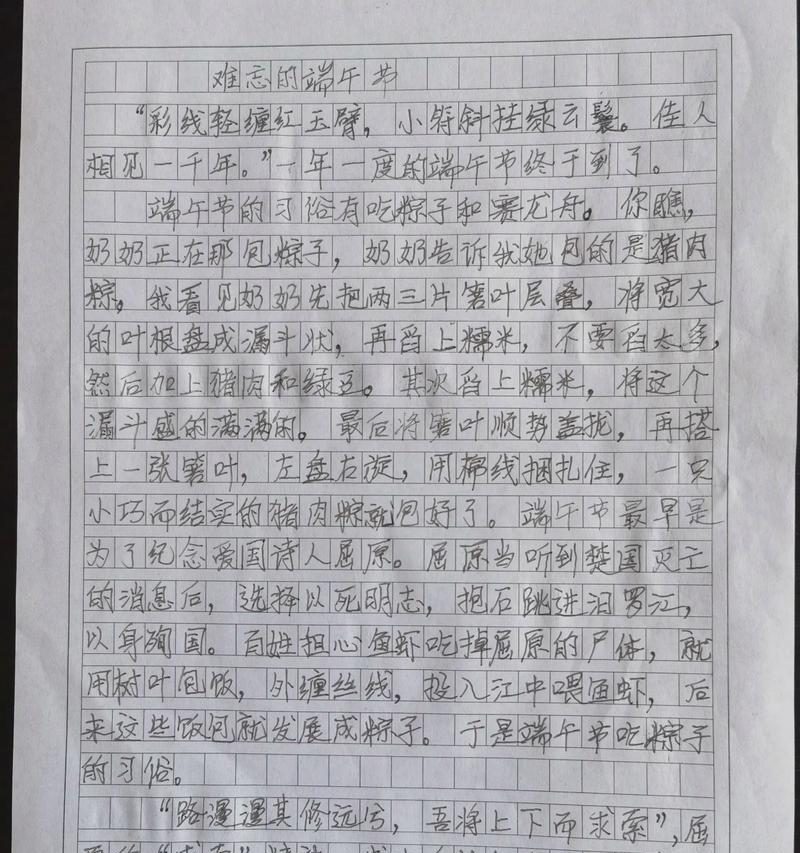 难忘的端午节
“彩线轻缠红玉臂，小符斜挂绿云鬟。佳人
相见一千年。”一年一度的端午节终于到了。
端午节的习俗有吃粽子和赛龙舟。你瞧，
奶奶正在那包粽子，奶奶告诉我她包的是猪肉
粽，我看见奶奶先把两三片箬叶层叠，将宽大
的叶根盘成漏斗状，再舀上糯米，不要舀太多，
然后加上猪肉和绿豆。其次舀上糯米，将这个
漏斗盛的满满的。最后将箬叶顺势盖拢，再搭
上一张箬叶，左盘右旋，用棉线捆扎住，一只
小巧而结实的猪肉粽就包好了。端午节最早是
为了纪念爱国诗人屈原。屈原当听到楚国灭亡
的消息后，选择以死明志，抱石跳进汨罗江，
以身殉国。百姓担心鱼虾吃掉屈原的尸体，就
用树叶包饭，外缠丝线，投入江中喂鱼虾，后
来这些饭包就发展成粽子。于是端午节吃粽子
的习俗。
“路漫漫其修远兮，吾将上下而求索”，屈